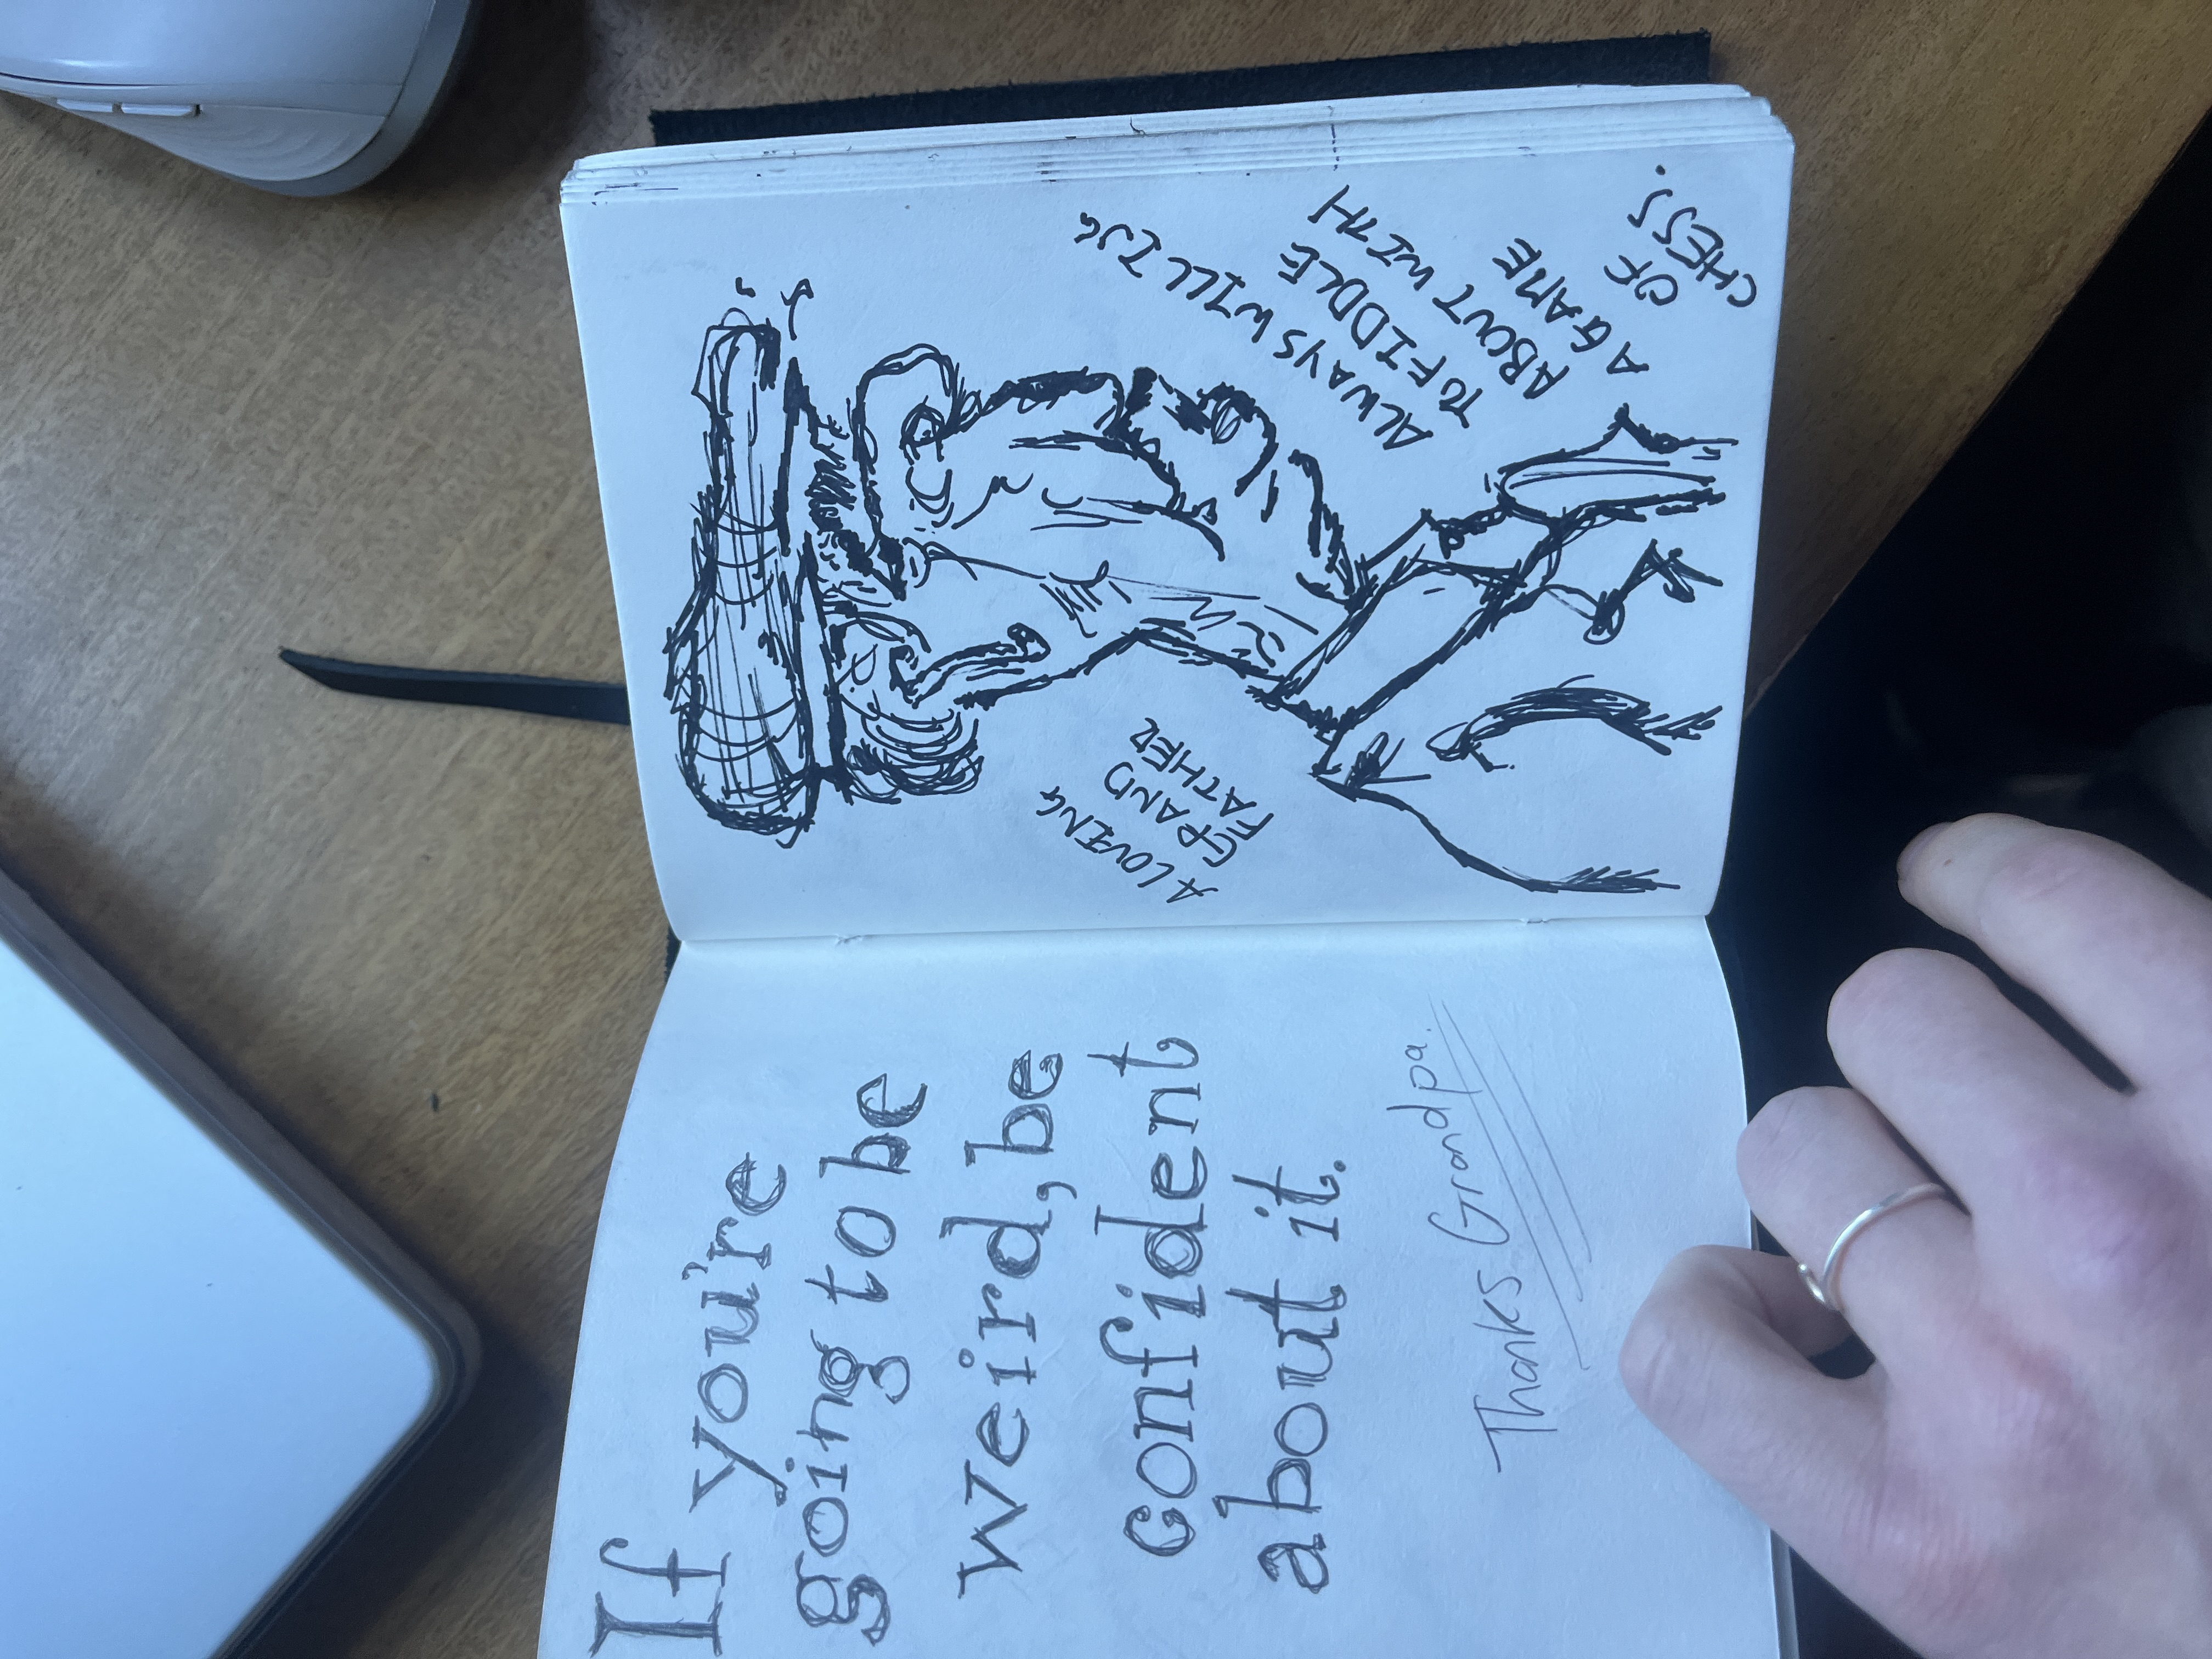 If you're
going to be
weird, be
confident
about it.
Thanks Grandpa.
A LOVING
GRAND
FATHER
ALWAYS WILLING
TO FIDDLE
ABOUT WITH
A GAME
OF
CHESS.